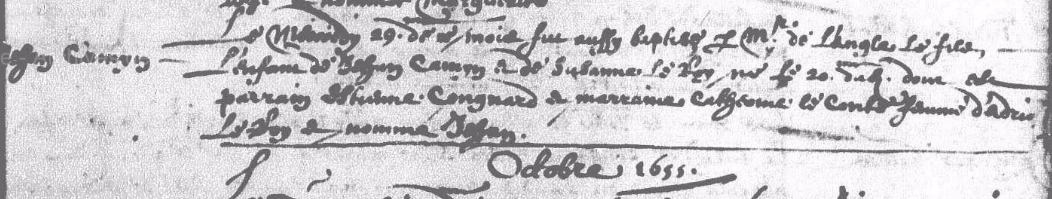 et nommée Marguerite
Jehan Camin
Le Mercredy 29. de ce mois fut aussy baptisé p Mr. de Langle le fils,
l'enfant de Jehan Camin & de Susanne le Roy, né le 20. dud. dont est
parrain Estienne Congnard & marraine Catherine le Conte femme d'Adri
le Roy & nommé Jehan.
Octobre 1655.